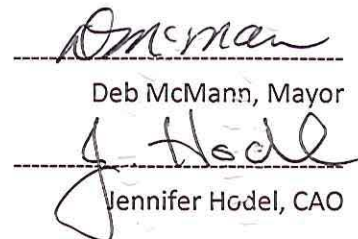 DMcMann
Deb McMann, Mayor
J. Hodel
Jennifer Hodel, CAO